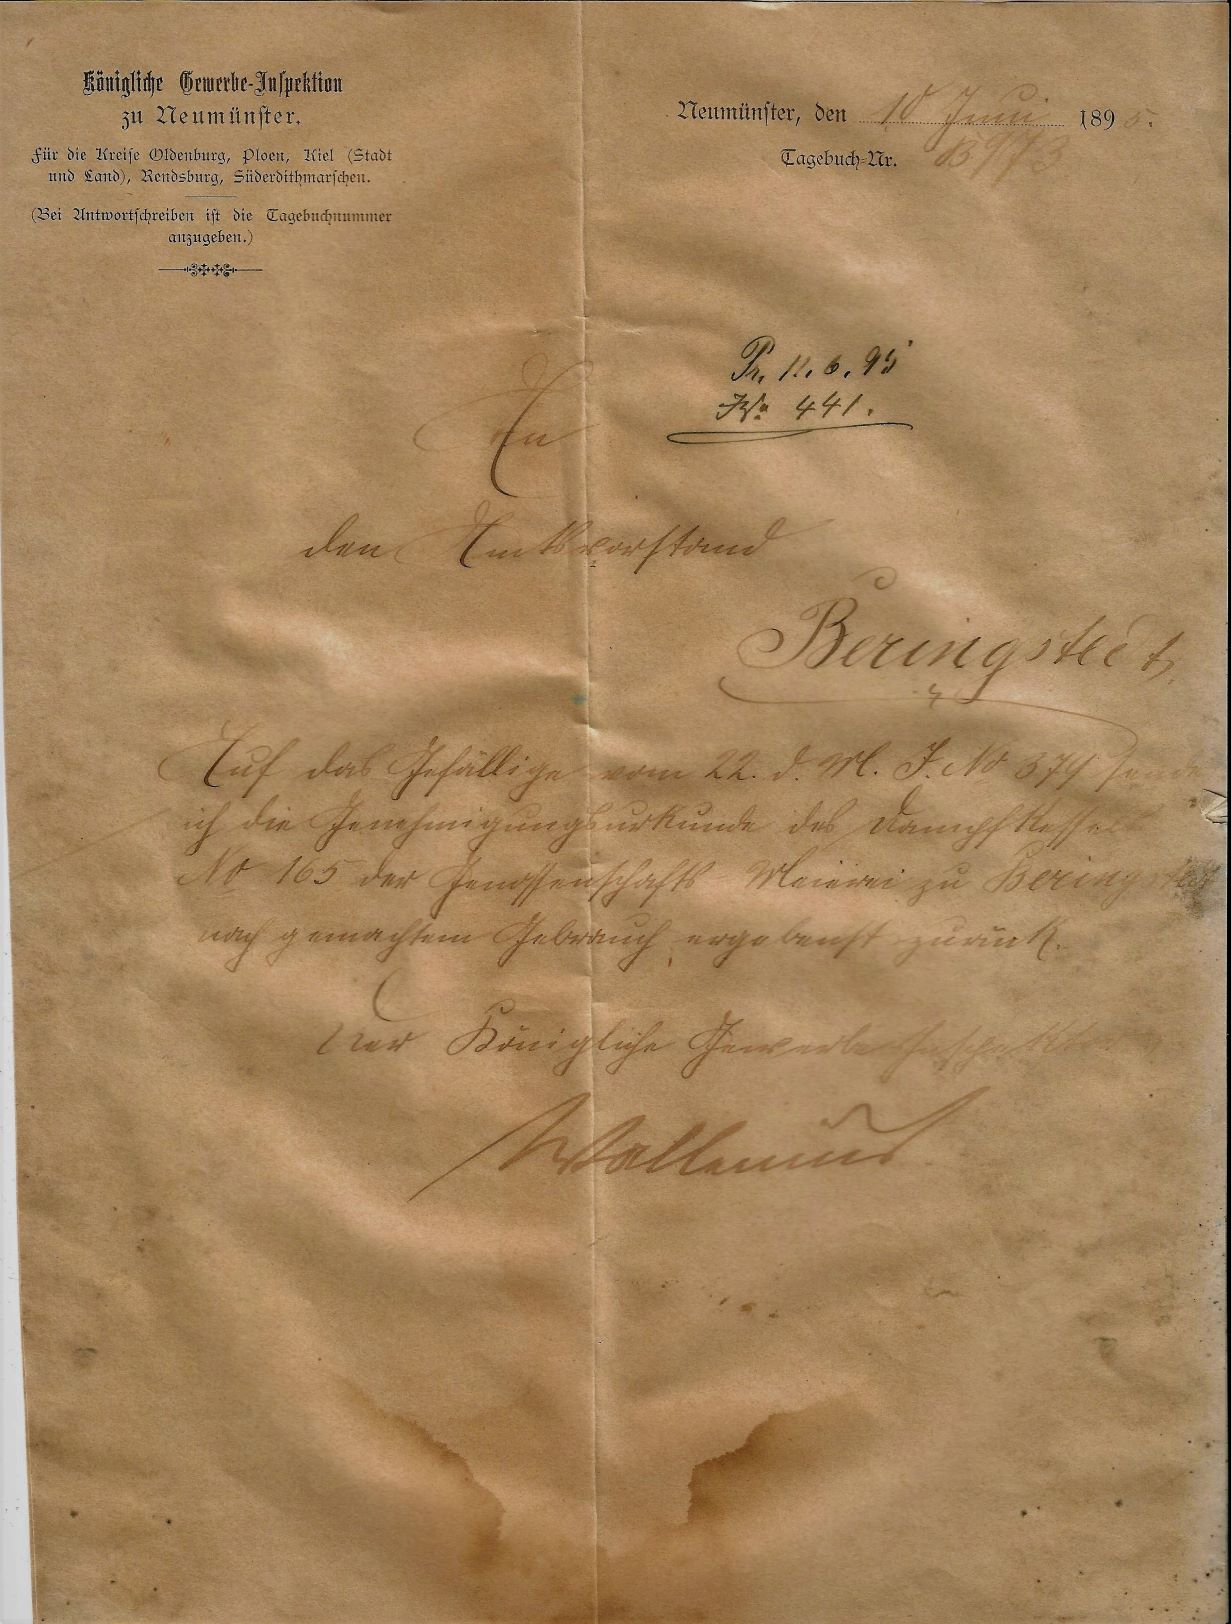 Königliche Gewerbe-Inspektion
zu Neumünster.
Für die Kreise Oldenburg, Ploen, Kiel (Stadt
und Land), Rendsburg, Süderdithmarschen.
(Bei Antwortschreiben ist die Tagebuchnummer
anzugeben.)
Neumünster, den 10 Juni 1895.
Tagebuch-Nr.
Pr. 11. 6. 95
441.
An
den Amtsvorstand
Beringstedt
Auf das Gefällige vom 22. d. M. J. No 374 sende
ich die Genehmigungsurkunde des Dampfkessels
No 165 der Genossenschafts-Meierei zu Beringstedt
nach gemachtem Gebrauch ergebenst zurück.
Der Königliche Gewerbeinspektor